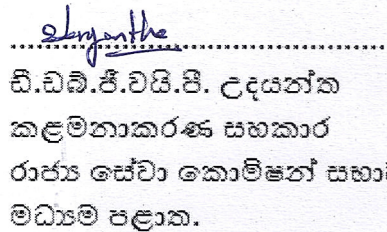 ඩී.ඩබ්.ජී.වයි.පී. උදයන්ත
කළමනාකරණ සහකාර
රාජ්‍ය සේවා කොමිෂන් සභා
මධ්‍යම පළාත.